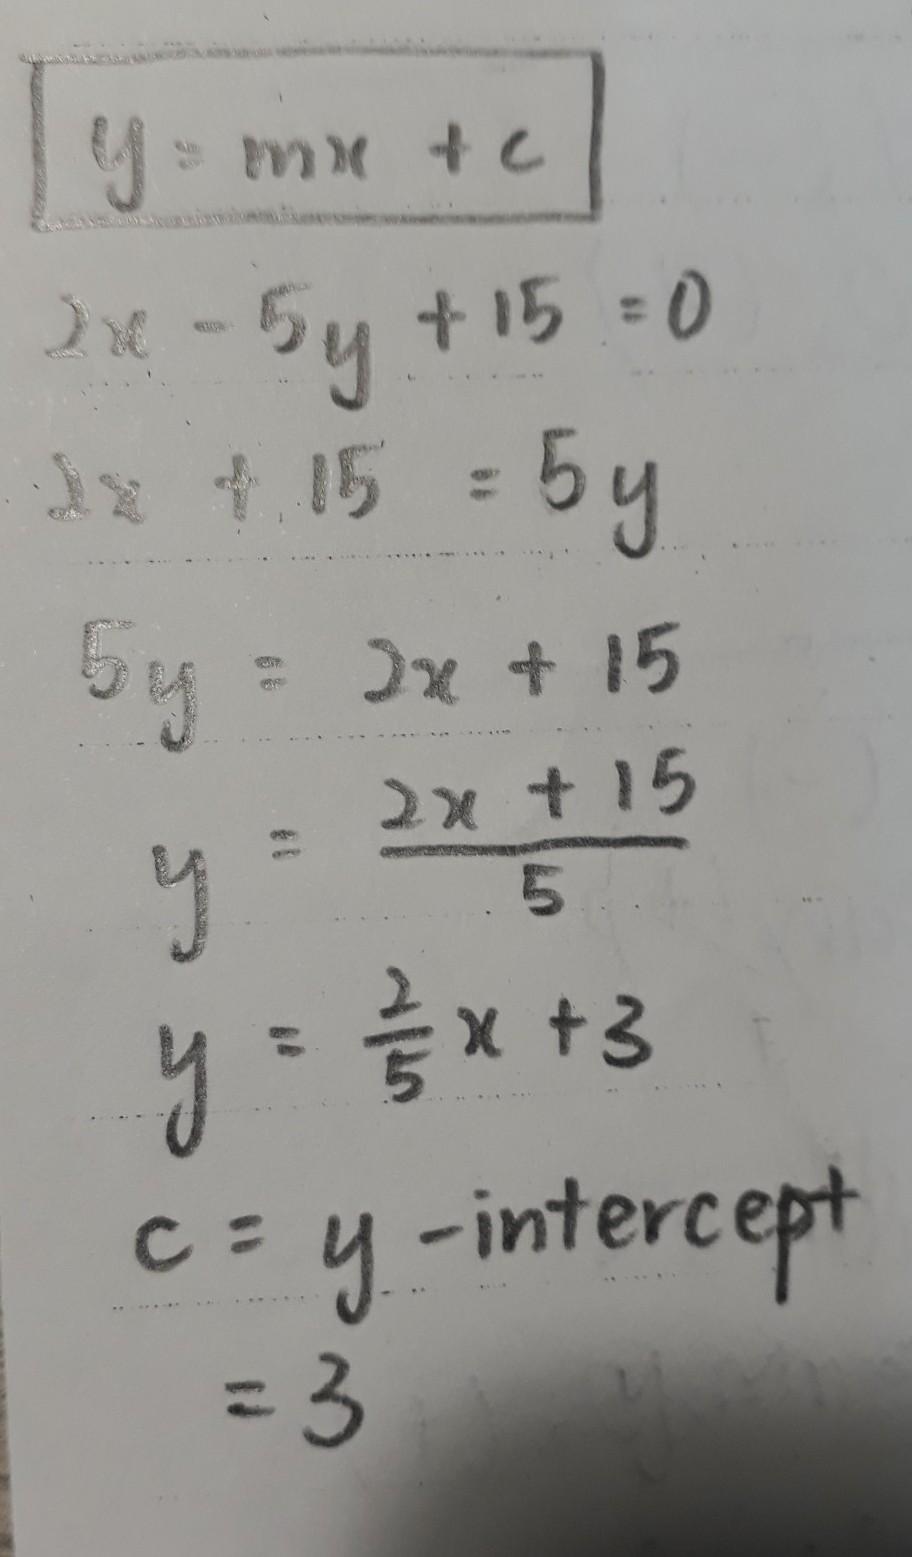 y = mx + c
2x - 5y + 15 = 0
2x + 15 = 5y
5y = 2x + 15
y = (2x + 15)/5
y = 2/5 x + 3
c = y-intercept
= 3